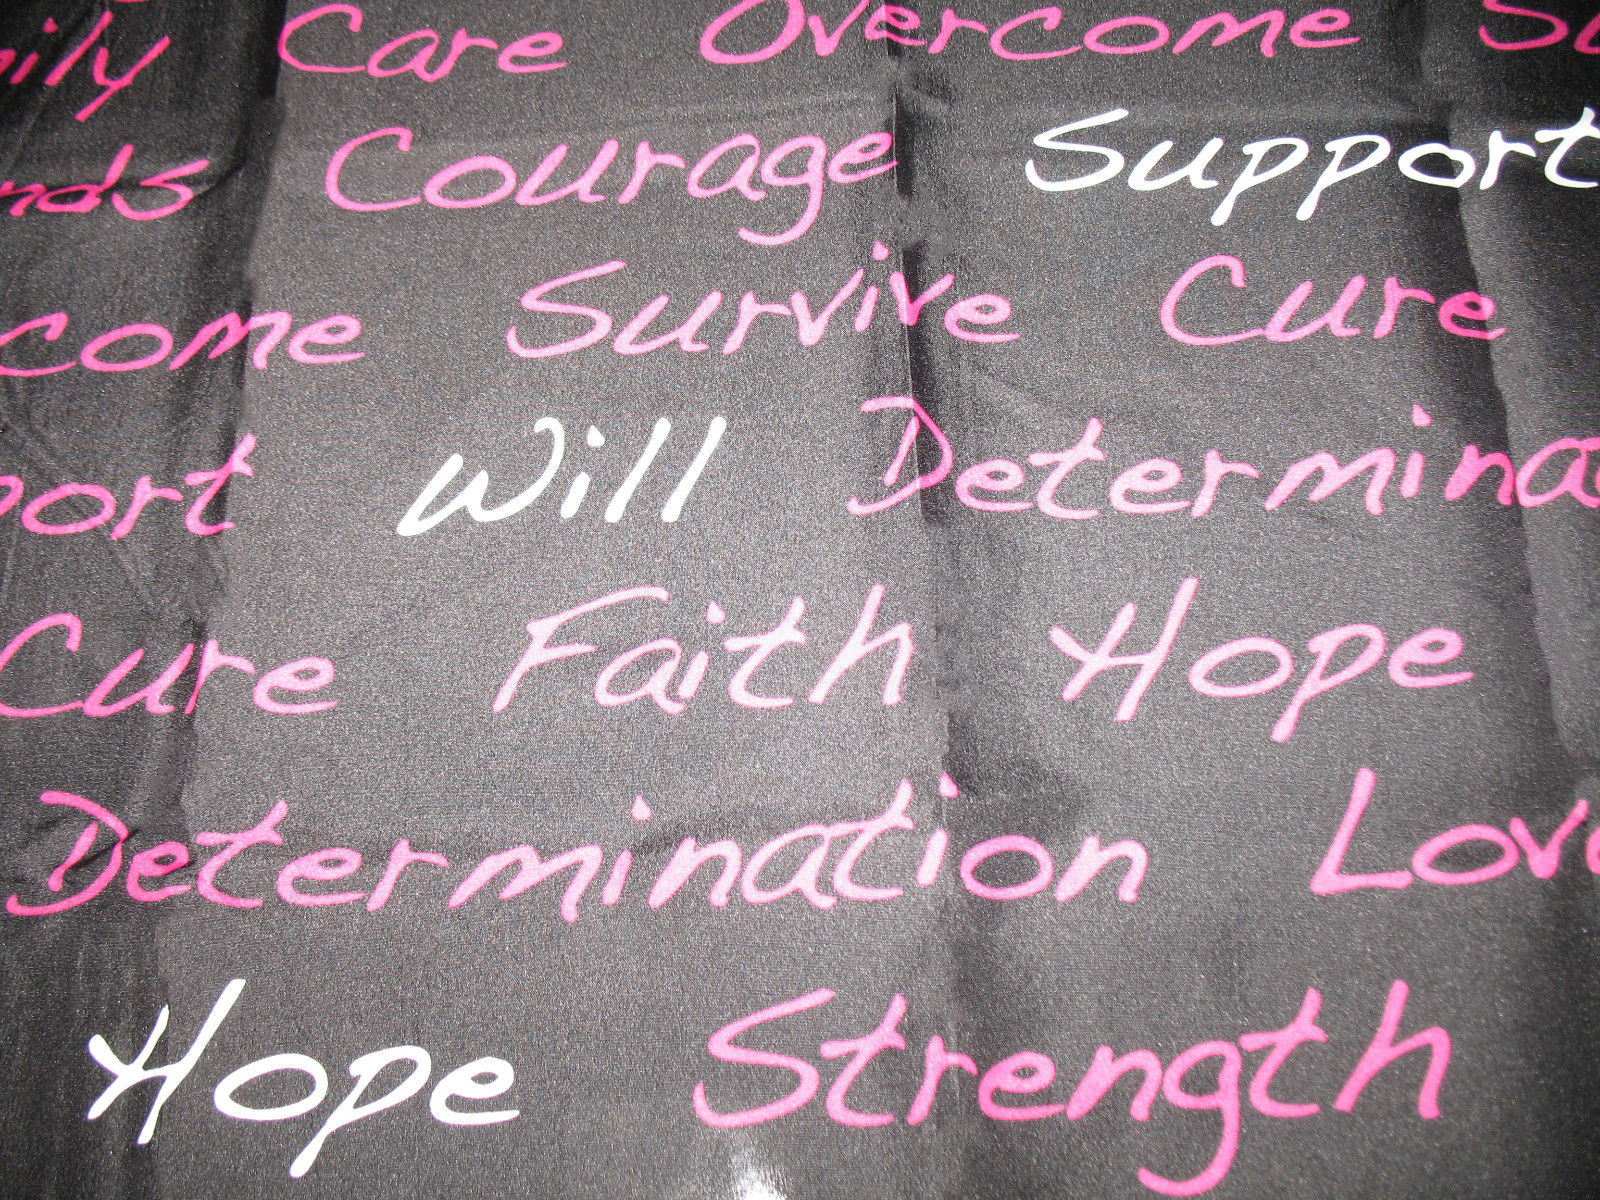 ily Care Overcome Su
nds Courage Support
come Survive Cure
port Will Determina
Cure Faith Hope
Determination Love
Hope Strength